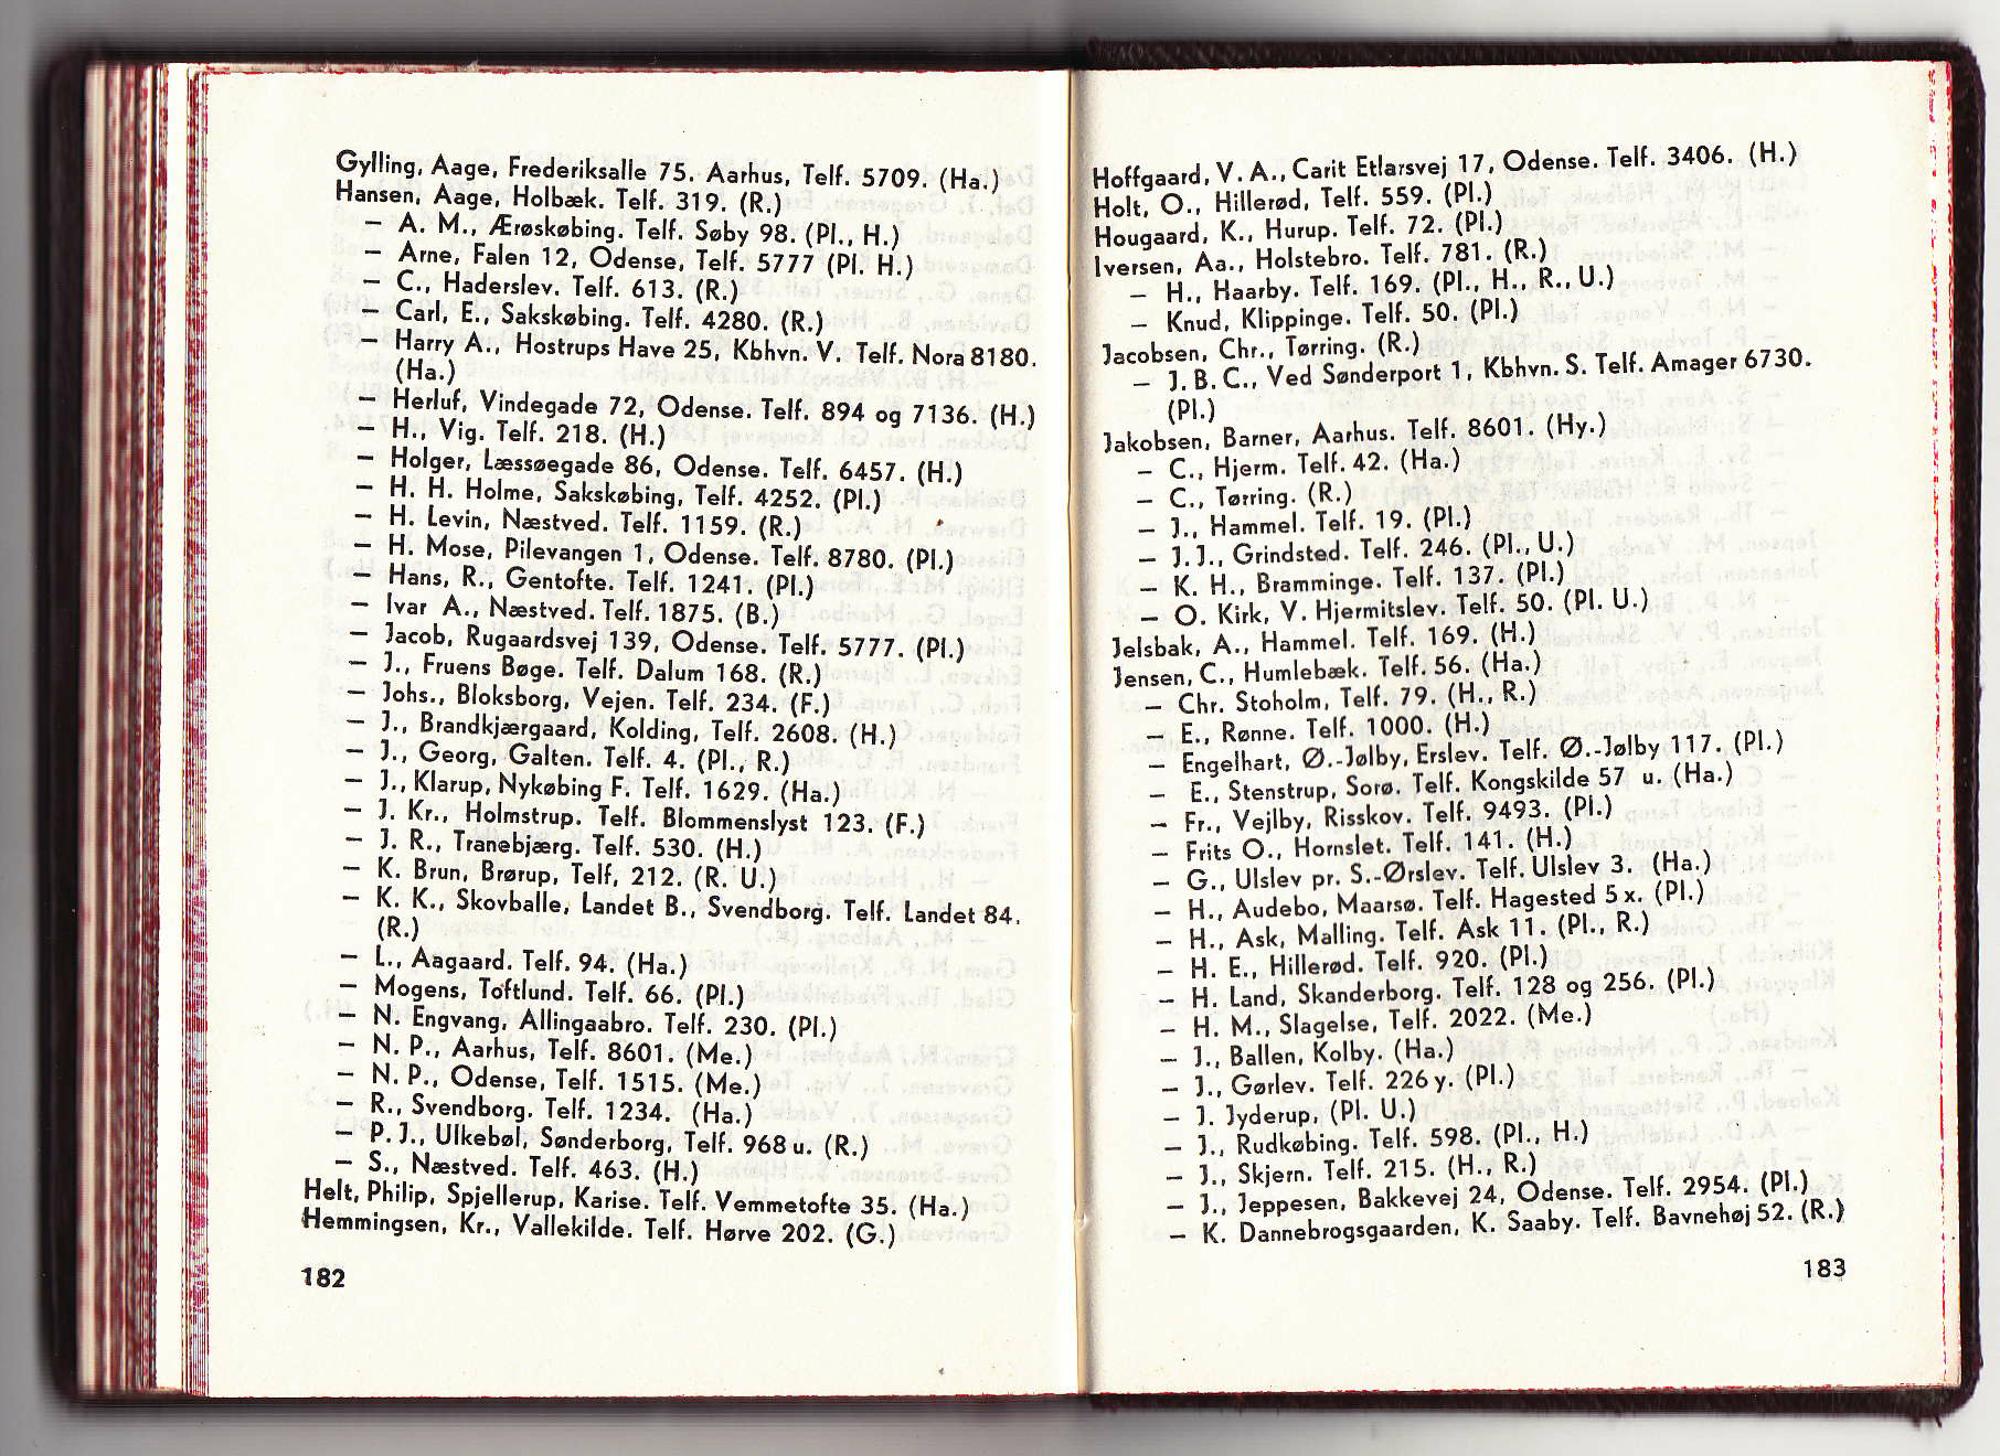 Gylling, Aage, Frederiksalle 75. Aarhus, Telf. 5709. (Ha.)
Hansen, Aage, Holbæk. Telf. 319. (R.)
— A. M., Ærøskøbing. Telf. Søby 98. (Pl., H.)
— Arne, Falen 12, Odense, Telf. 5777 (Pl. H.)
— C., Haderslev. Telf. 613. (R.)
— Carl, E., Sakskøbing. Telf. 4280. (R.)
— Harry A., Hostrups Have 25, Kbhvn. V. Telf. Nora 8180.
(Ha.)
— Herluf, Vindegade 72, Odense. Telf. 894 og 7136. (H.)
— H., Vig. Telf. 218. (H.)
— Holger, Læssøegade 86, Odense. Telf. 6457. (H.)
— H. H. Holme, Sakskøbing, Telf. 4252. (Pl.)
— H. Levin, Næstved. Telf. 1159. (R.)
— H. Mose, Pilevangen 1, Odense. Telf. 8780. (Pl.)
— Hans, R., Gentofte. Telf. 1241. (Pl.)
— Ivar A., Næstved. Telf. 1875. (B.)
— Jacob, Rugaardsvej 139, Odense. Telf. 5777. (Pl.)
— J., Fruens Bøge. Telf. Dalum 168. (R.)
— Johs., Bloksborg, Vejen. Telf. 234. (F.)
— J., Brandkjærgaard, Kolding, Telf. 2608. (H.)
— J., Georg, Galten. Telf. 4. (Pl., R.)
— J., Klarup, Nykøbing F. Telf. 1629. (Ha.)
— J. Kr., Holmstrup. Telf. Blommenslyst 123. (F.)
— J. R., Tranebjærg. Telf. 530. (H.)
— K. Brun, Brørup, Telf, 212. (R. U.)
— K. K., Skovballe, Landet B., Svendborg. Telf. Landet 84.
(R.)
— L., Aagaard. Telf. 94. (Ha.)
— Mogens, Toftlund. Telf. 66. (Pl.)
— N. Engvang, Allingaabro. Telf. 230. (Pl.)
— N. P., Aarhus, Telf. 8601. (Me.)
— N. P., Odense, Telf. 1515. (Me.)
— R., Svendborg. Telf. 1234. (Ha.)
— P. J., Ulkebøl, Sønderborg, Telf. 968 u. (R.)
— S., Næstved. Telf. 463. (H.)
Helt, Philip, Spjellerup, Karise. Telf. Vemmetofte 35. (Ha.)
Hemmingsen, Kr., Vallekilde. Telf. Hørve 202. (G.)
182
Hoffgaard, V. A., Carit Etlarsvej 17, Odense. Telf. 3406. (H.)
Holt, O., Hillerød, Telf. 559. (Pl.)
Hougaard, K., Hurup. Telf. 72. (Pl.)
Iversen, Aa., Holstebro. Telf. 781. (R.)
— H., Haarby. Telf. 169. (Pl., H., R., U.)
— Knud, Klippinge. Telf. 50. (Pl.)
Jacobsen, Chr., Tørring. (R.)
— J. B. C., Ved Sønderport 1, Kbhvn. S. Telf. Amager 6730.
(Pl.)
Jakobsen, Barner, Aarhus. Telf. 8601. (Hy.)
— C., Hjerm. Telf. 42. (Ha.)
— C., Tørring. (R.)
— J., Hammel. Telf. 19. (Pl.)
— J. J., Grindsted. Telf. 246. (Pl., U.)
— K. H., Bramminge. Telf. 137. (Pl.)
— O. Kirk, V. Hjermitslev. Telf. 50. (Pl. U.)
Jelsbak, A., Hammel. Telf. 169. (H.)
Jensen, C., Humlebæk. Telf. 56. (Ha.)
— Chr. Stoholm, Telf. 79. (H., R.)
— E., Rønne. Telf. 1000. (H.)
— Engelhart, Ø.-Jølby, Erslev. Telf. Ø.-Jølby 117. (Pl.)
— E., Stenstrup, Sorø. Telf. Kongskilde 57 u. (Ha.)
— Fr., Vejlby, Risskov. Telf. 9493. (Pl.)
— Frits O., Hornslet. Telf. 141. (H.)
— G., Ulslev pr. S.-Ørslev. Telf. Ulslev 3. (Ha.)
— H., Audebo, Maarsø. Telf. Hagested 5 x. (Pl.)
— H., Ask, Malling. Telf. Ask 11. (Pl., R.)
— H. E., Hillerød. Telf. 920. (Pl.)
— H. Land, Skanderborg. Telf. 128 og 256. (Pl.)
— H. M., Slagelse, Telf. 2022. (Me.)
— J., Ballen, Kolby. (Ha.)
— J., Gørlev. Telf. 226 y. (Pl.)
— J. Jyderup, (Pl. U.)
— J., Rudkøbing. Telf. 598. (Pl., H.)
— J., Skjern. Telf. 215. (H., R.)
— J., Jeppesen, Bakkevej 24, Odense. Telf. 2954. (Pl.)
— K. Dannebrogsgaarden, K. Saaby. Telf. Bavnehøj 52. (R.)
183